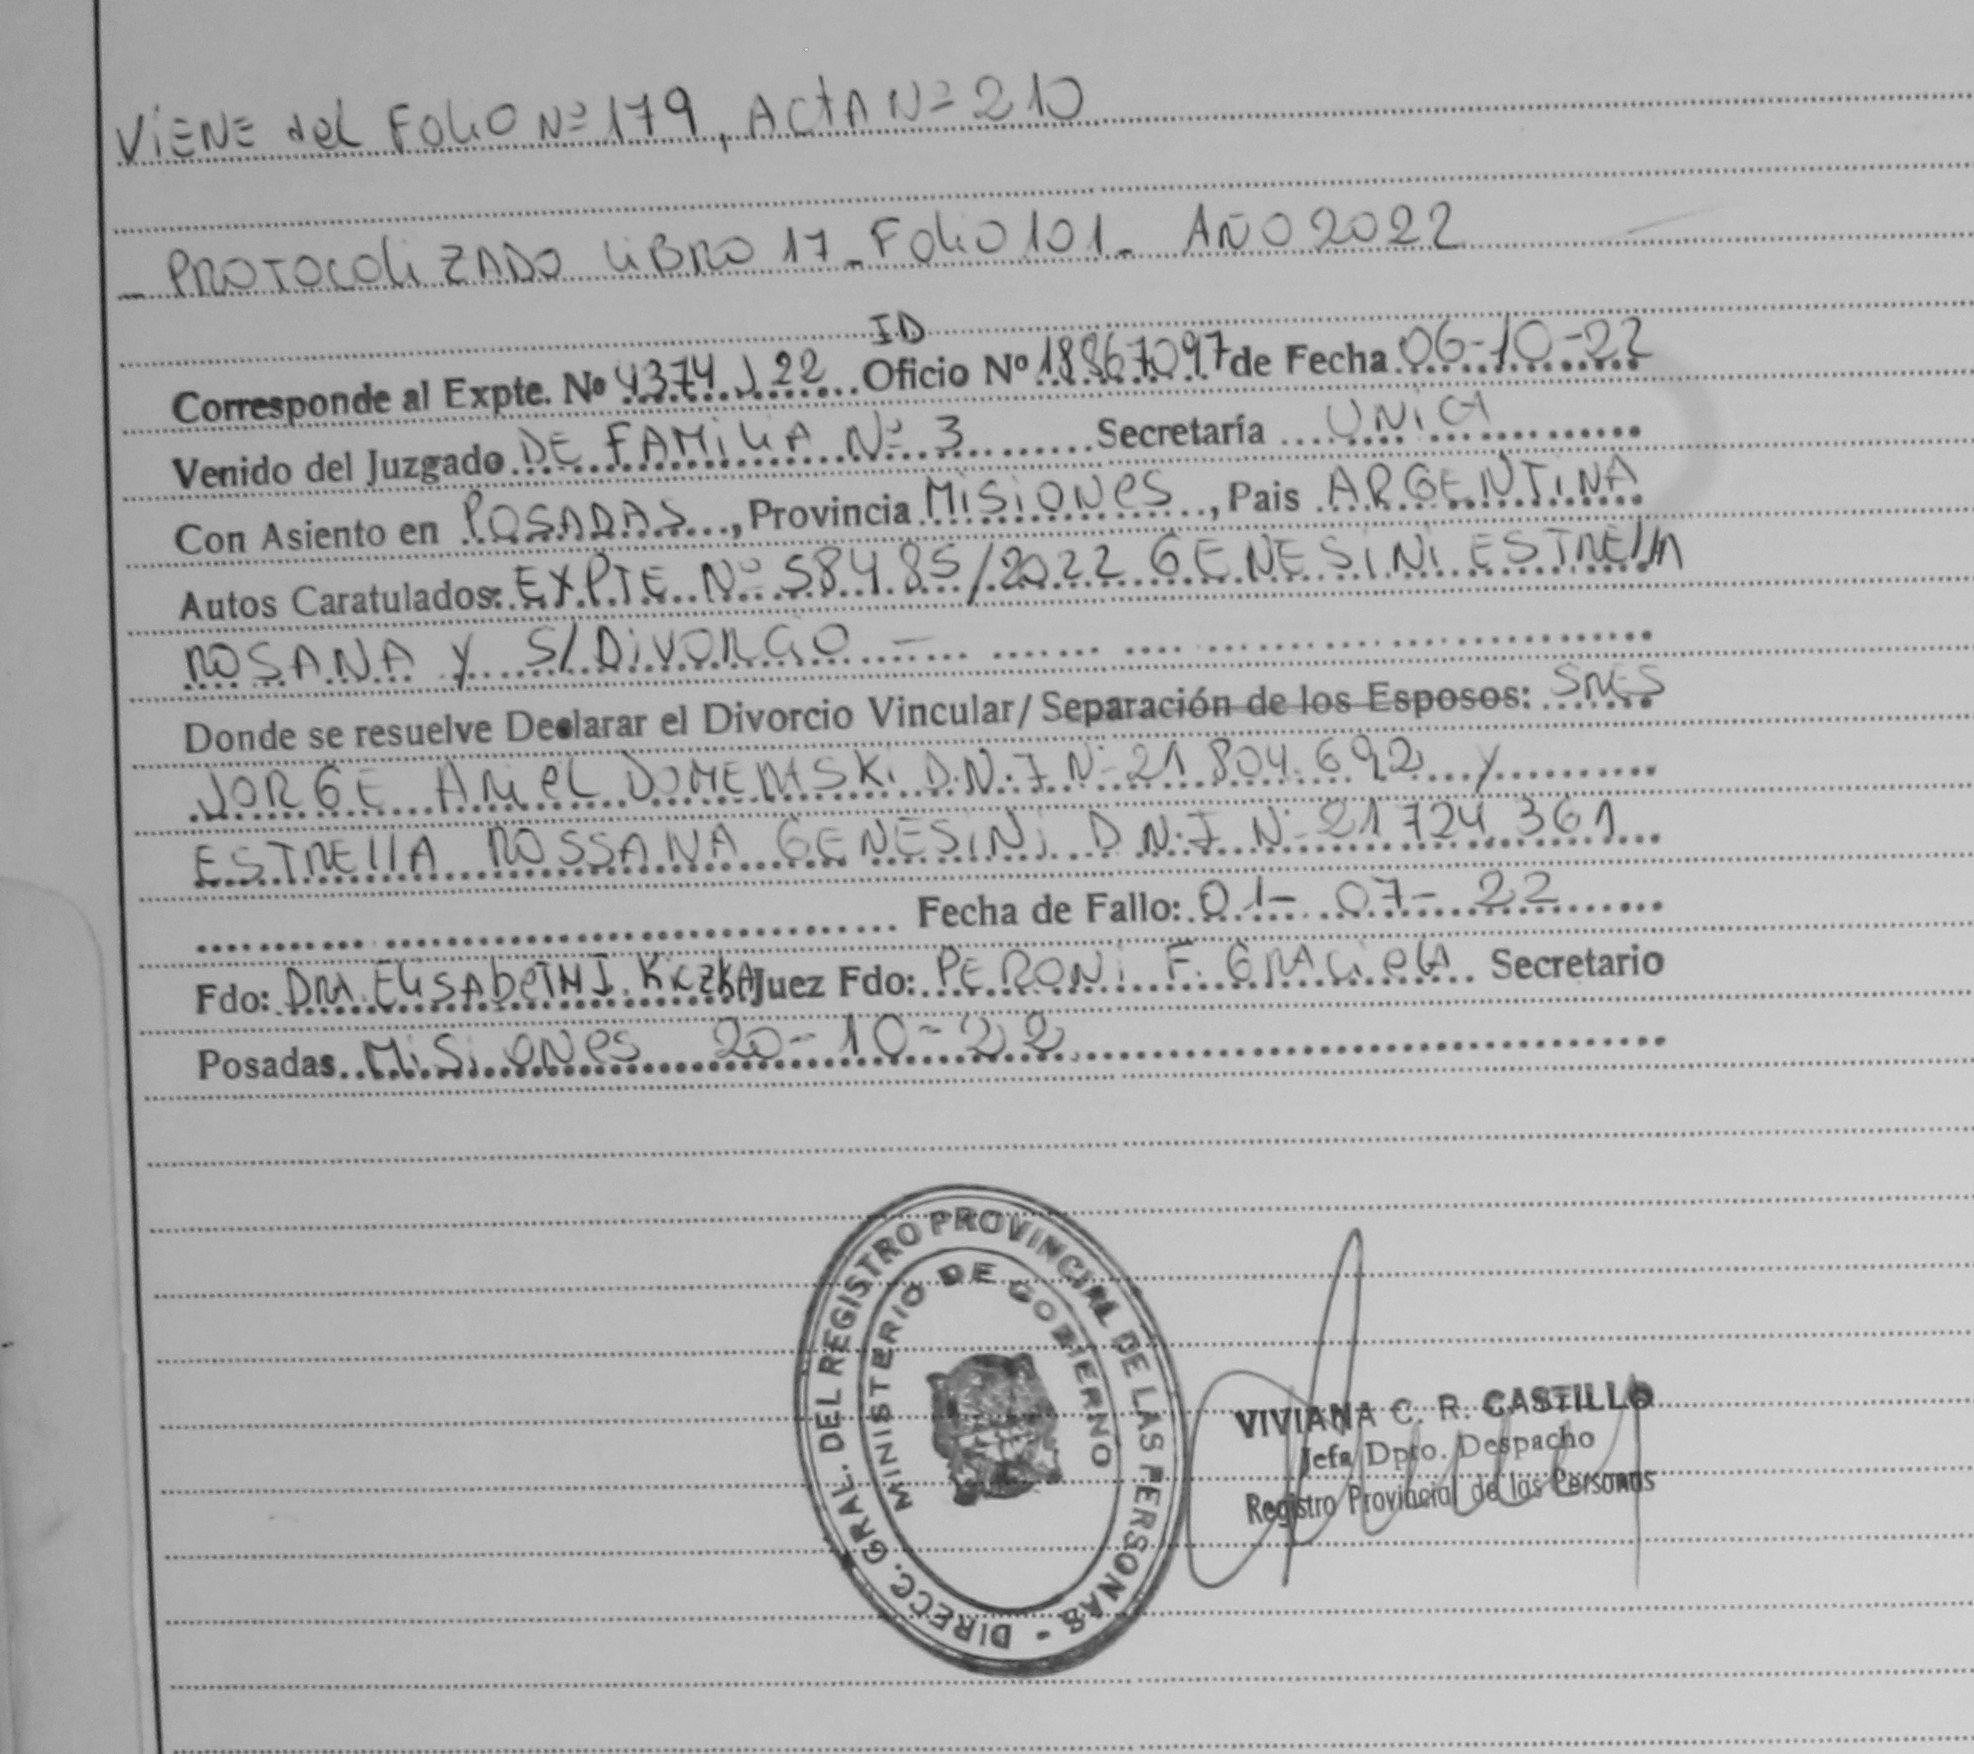 VIENE del FOLIO Nº 179, ACTA Nº 210
_ PROTOCOLIZADO LIBRO 17_ FOLIO 101_ AÑO 2022
ID
Corresponde al Expte. Nº 4374 J 22 Oficio Nº 18867097 de Fecha 06-10-22
Venido del Juzgado DE FAMILIA Nº 3 Secretaría UNICA
Con Asiento en POSADAS, Provincia MISIONES, Pais ARGENTINA
Autos Caratulados: EXPTE Nº 58485/2022 GENESINI ESTRELLA
ROSANA Y S/DIVORCIO -
Donde se resuelve Declarar el Divorcio Vincular/ Separación de los Esposos: SRES
JORGE ARIEL D.N.I Nº 21.804.692 y
ESTRELLA ROSSANA GENESINI D.N.I Nº 21724361
Fecha de Fallo: 01-07-22
Fdo: DRA. ELISABETH I. KICZKA Juez Fdo: PERONI F. GRACIELA Secretario
Posadas MISIONES 20-10-22
DIRECC. GRAL. DEL REGISTRO PROVINCIAL DE LAS PERSONAS -
MINISTERIO DE GOBIERNO
VIVIANA C. R. CASTILLO
Jefa Dpto. Despacho
Registro Provincial de las Personas